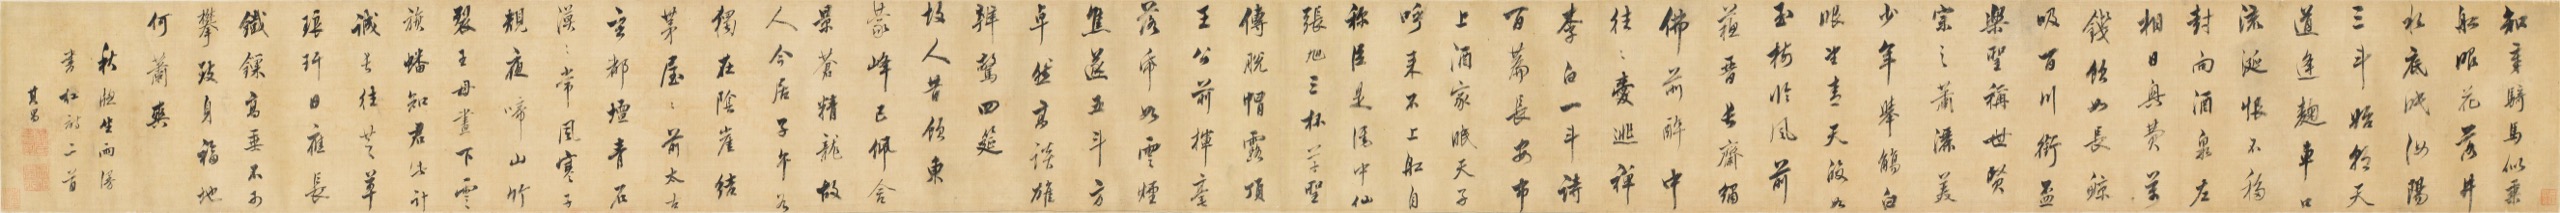 知章騎馬似乘
船眼花落井
水底眠汝陽
三斗始朝天
道逢麹車口
流涎恨不移
封向酒泉左
相日興費萬
錢飲如長鯨
吸百川銜盃
樂聖稱世賢
宗之蕭灑美
少年舉觴白
眼望青天皎如
玉樹臨風前
蘇晉長齋繡
佛前醉中
往〻愛逃禪
李白一斗詩
百篇長安市
上酒家眠天子
呼來不上船自
稱臣是酒中仙
張旭三杯草聖
傳脫帽露頂
王公前揮毫
落紙如雲煙
焦遂五斗方
卓然高談雄
辯驚四筵
故人昔隱東
蒙峰已佩含
景蒼精龍故
人今居子午谷
獨在陰崖結
茅屋〻前太古
玄都壇青石
漠〻常風寒子
規夜啼山竹
裂王母晝下雲
旗旛知君此計
誠長往芝草
琅玕日應長
鐵鎖高垂不可
攀致身福地
何蕭爽
秋夜坐雨漫
書杜詩二首
其昌